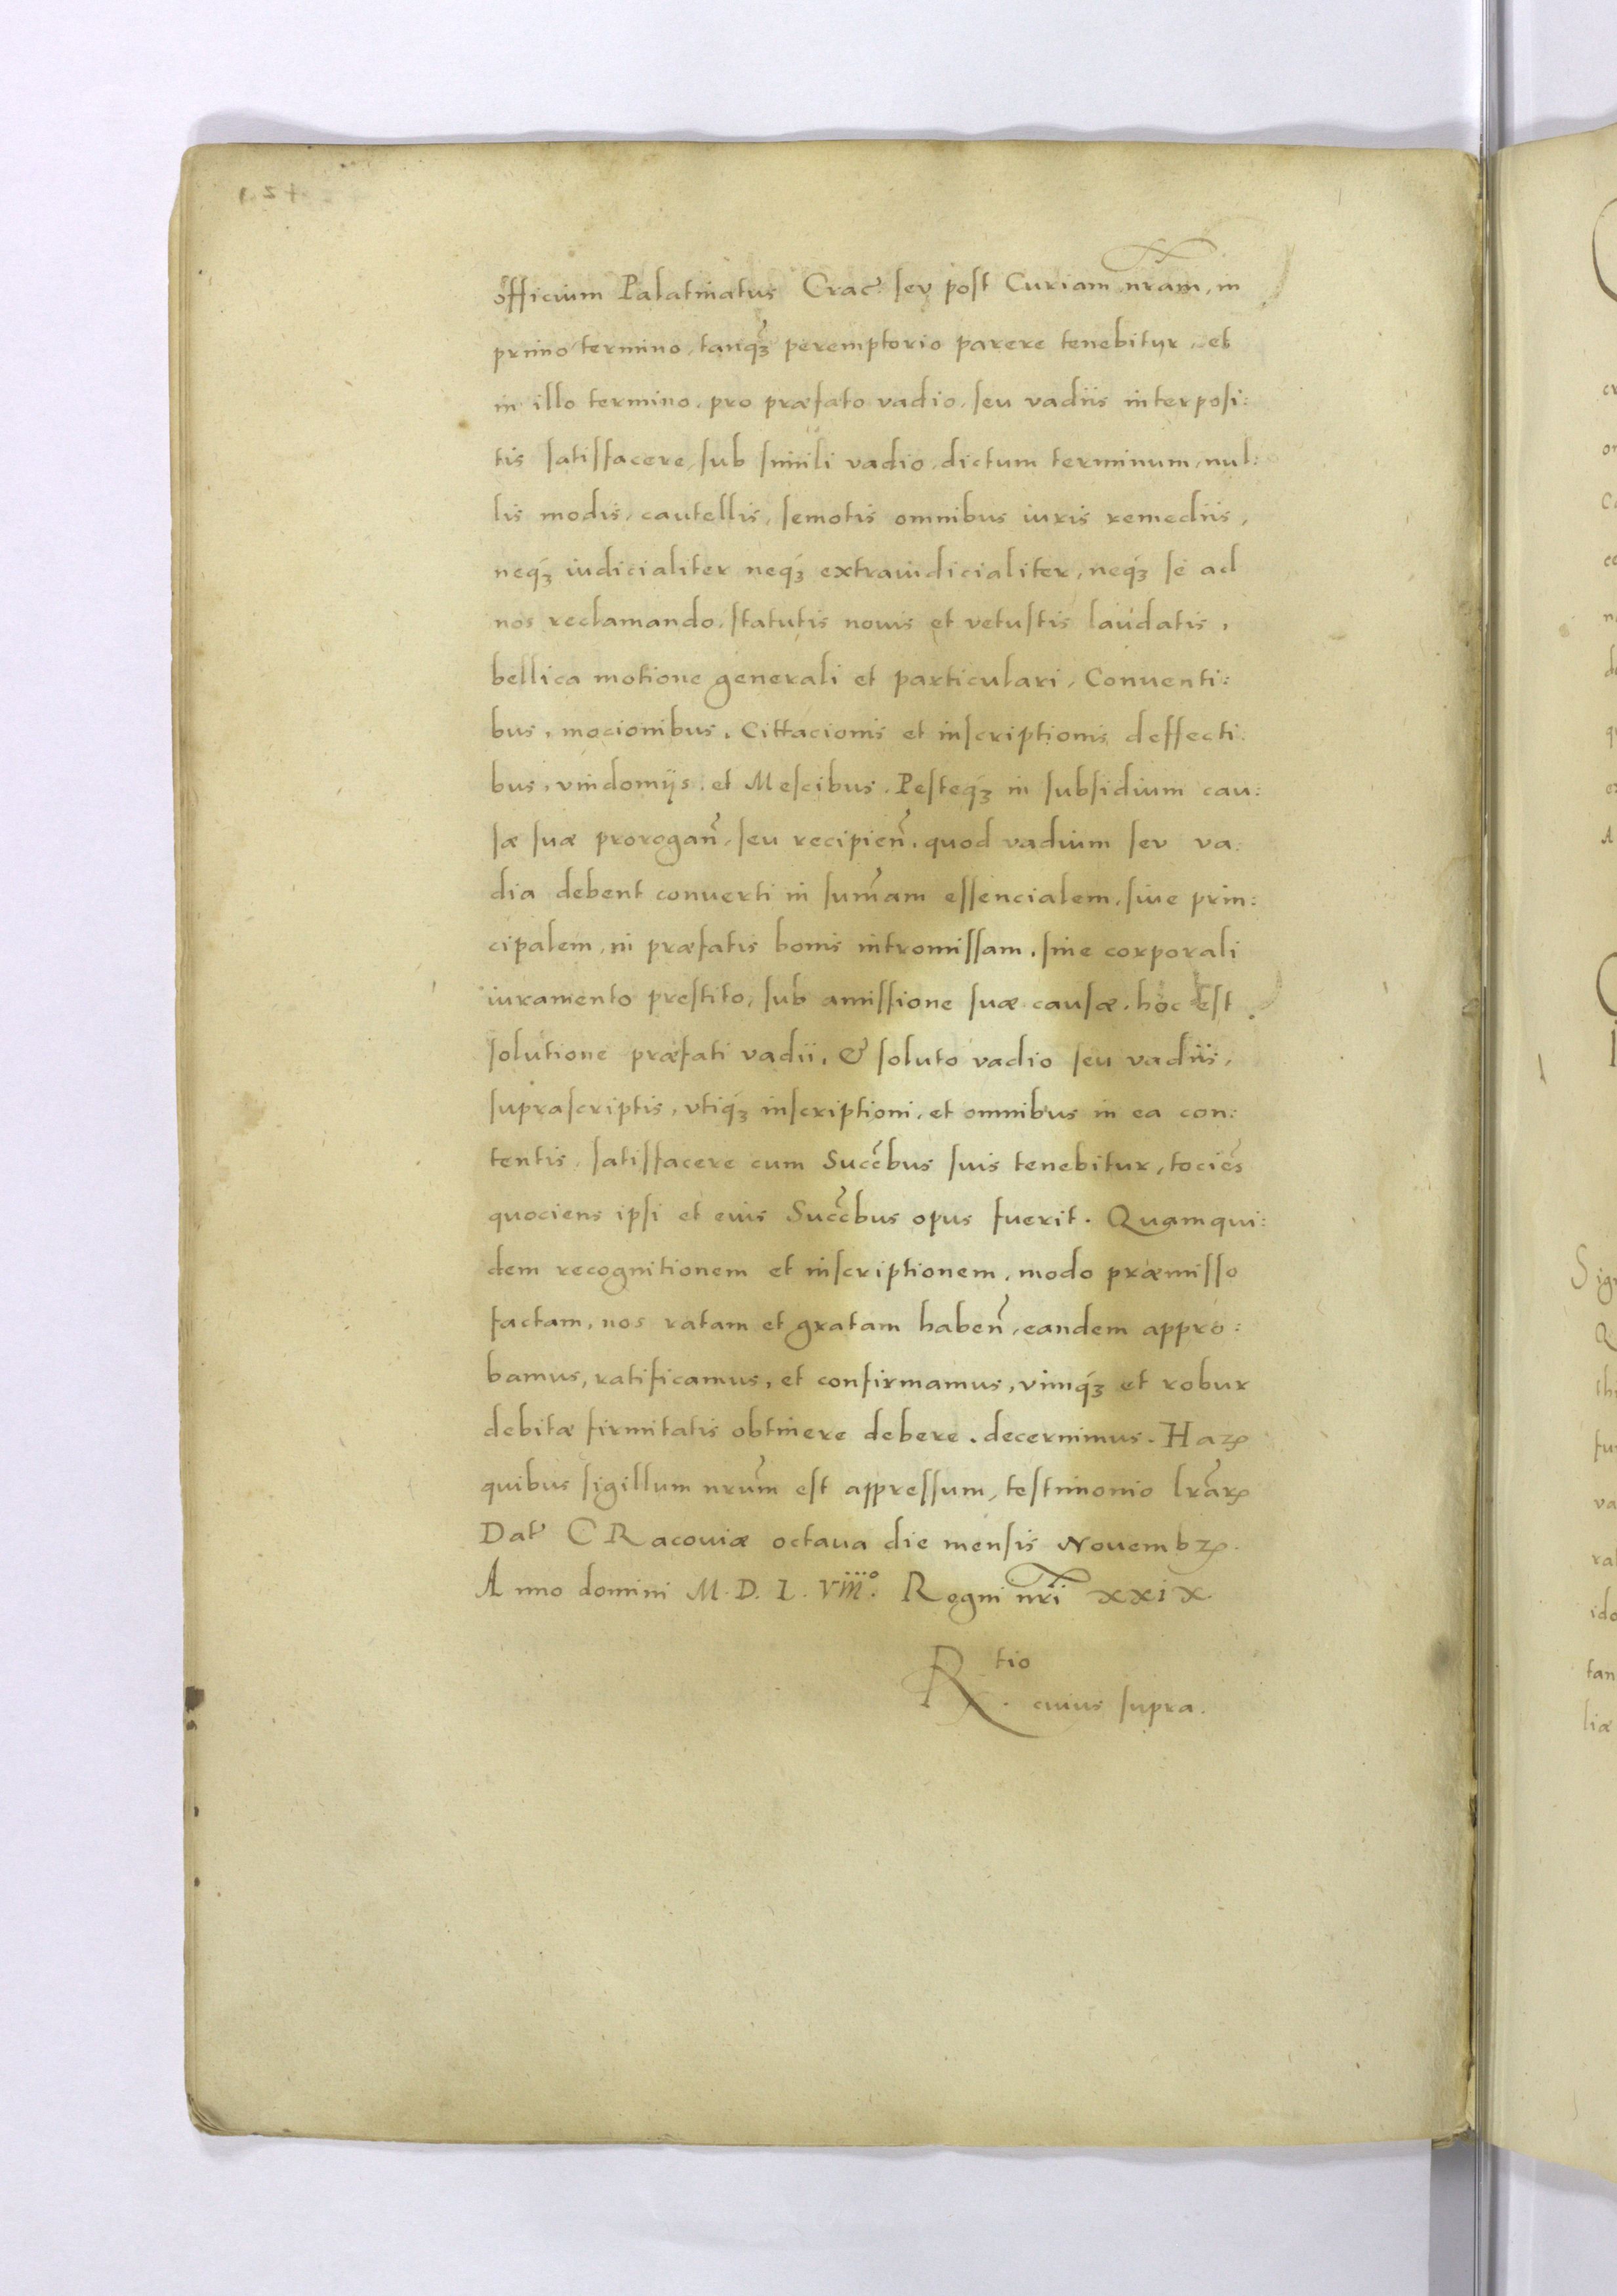 officium Palatinatus Crac̃ seu post Curiam nr̃am, in
primo termino, tanqȝ̃ peremptorio parere tenebitur, et
in illo termino, pro præfato vadio, seu vadiis interposi:
tis satisfacere, sub simili vadio, dictum terminum, nul:
lis modis, cautellis, semotis omnibus iuris remediis,
neqȝ́ iudicialiter neqȝ́ extraiudicialiter, neqȝ́ se ad
nos reclamando, statutis nouis et vetustis laudatis,
bellica motione generali et particulari, Conuenti:
bus, mocionibus, Cittacionis et inscriptionis deffecti:
bus, vindomijs, et Mescibus, Pesteqȝ́ in subsidium cau:
sæ suæ prorogañ, seu recipieñ, quod vadium seu va:
dia debent conuerti in sum̃am essencialem, siue prin:
cipalem, in præfatis bonis intromissam, sine corporali
iuramento prestito, sub amissione suæ causæ, hoc est
solutione præfati vadii, & soluto vadio seu vadiis,
suprascriptis, vtiqȝ́ inscriptioni, et omnibus in ea con:
tentis, satisfacere cum Succ̃bus suis tenebitur, tocies̃
quociens ipsi et eius Succ̃bus opus fuerit. Quamqui:
dem recognitionem et inscriptionem, modo præmisso
factam, nos ratam et gratam habeñ, eandem appro:
bamus, ratificamus, et confirmamus, vimqȝ́ et robur
debitæ firmitatis obtinere debere, decernimus. Haꝝ
quibus sigillum nrũm est appressum, testimonio lr̃arꝝ
Dat̃ CRacouiæ octaua die mensis Nouembꝝ.
Anno domini M. D. L. Viiii°. Regni nr̃i xxix.
R tio
. cuius supra.